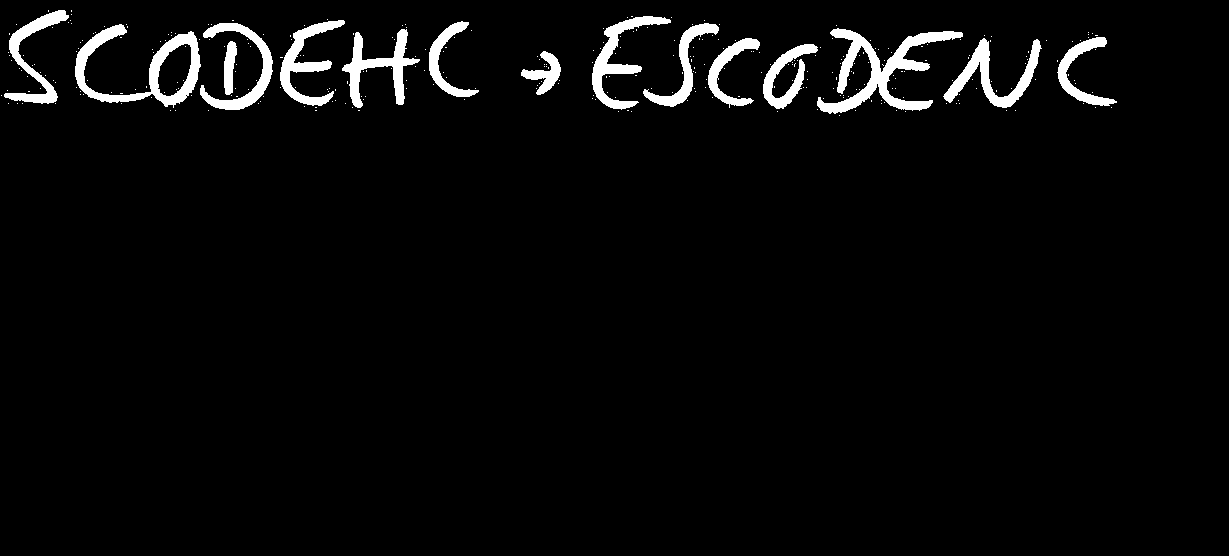 SCODEHC → ESCODENC